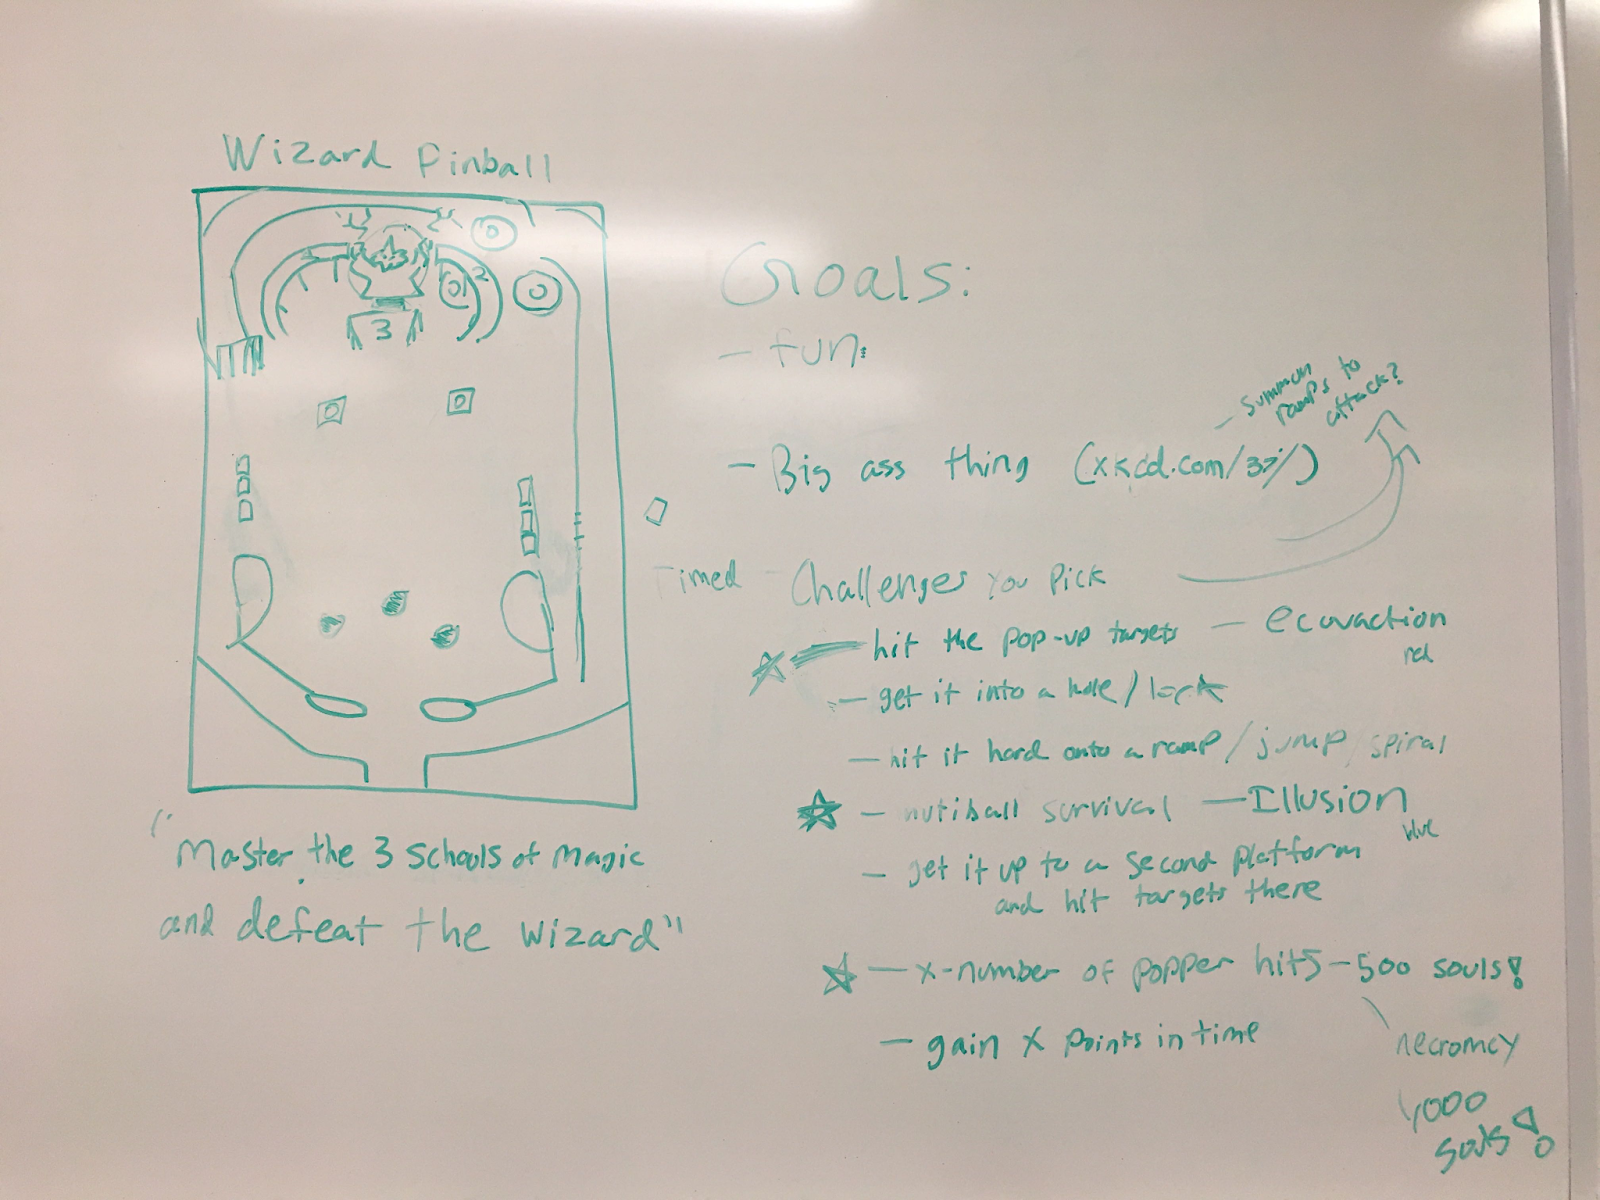 Wizard Pinball
2
3
"Master the 3 schools of magic
and defeat the wizard"
Goals:
- fun
- Big ass thing (xkcd.com/37/)
- summon
ramps to
attack?
Timed - Challenges you pick
- hit the pop-up targets - ecovaction
red
- get it into a hole/lock
- hit it hard onto a ramp/jump/spiral
- mutiball survival - Illusion
blue
- get it up to a second platform
and hit targets there
- x-number of popper hits - 500 souls!
necromcy
- gain X points in time
1000
souls!